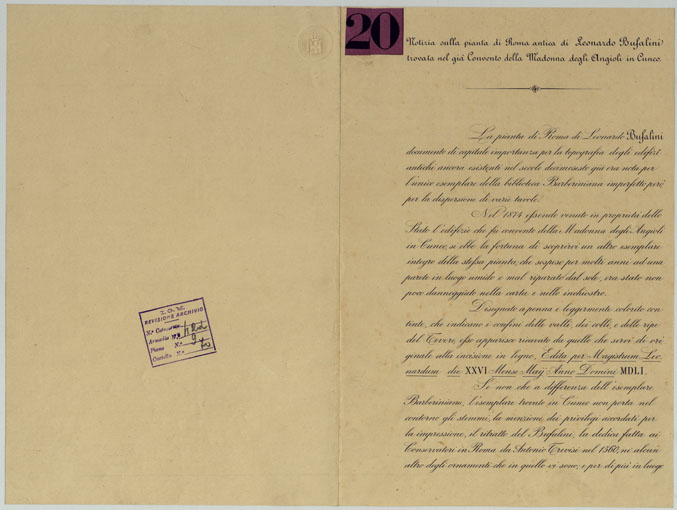 20
Notizia sulla pianta di Roma antica di Leonardo Bufalini
trovata nel già Convento della Madonna degli Angioli in Cuneo.
La pianta di Roma di Leonardo Bufalini
documento di capitale importanza per la topografia degli edifizî
antichi ancora esistenti nel secolo decimosesto già era nota per
l'unico esemplare della biblioteca Barberiniana imperfetto però
per la dispersione di varie tavole.
Nel 1874 essendo venuto in proprietà dello
Stato l'edifizio che fu convento della Madonna degli Angioli
in Cuneo, si ebbe la fortuna di scoprirvi un altro esemplare
integro della stessa pianta, che sospeso per molti anni ad una
parete in luogo umido e mal riparato dal sole, era stato non
poco danneggiato nella carta e nello inchiostro.
Disegnato a penna e leggermente colorito con
tinte, che indicano i confini delle valli, dei colli, e delle ripe
del Tevere, esso apparisce ricavato da quello che servì di ori-
ginale alla incisione in legno, Edita per Magistrum Leo-
nardum die XXVI Mense Maij Anno Domini MDLI.
Se non che a differenza dell'esemplare
Barberiniano, l'esemplare trovato in Cuneo non porta nel
contorno gli stemmi, la menzione dei privilegi accordati per
la impressione, il ritratto del Bufalini, la dedica fatta ai
Conservatori in Roma da Antonio Trevisi nel 1560, nè alcun
altro degli ornamenti che in quello vi sono; e per di più in luogo
REVISIONE ARCHIVIO
N.º Categoria
Armadio N.º
Piano N.º 9
Cartella N.º